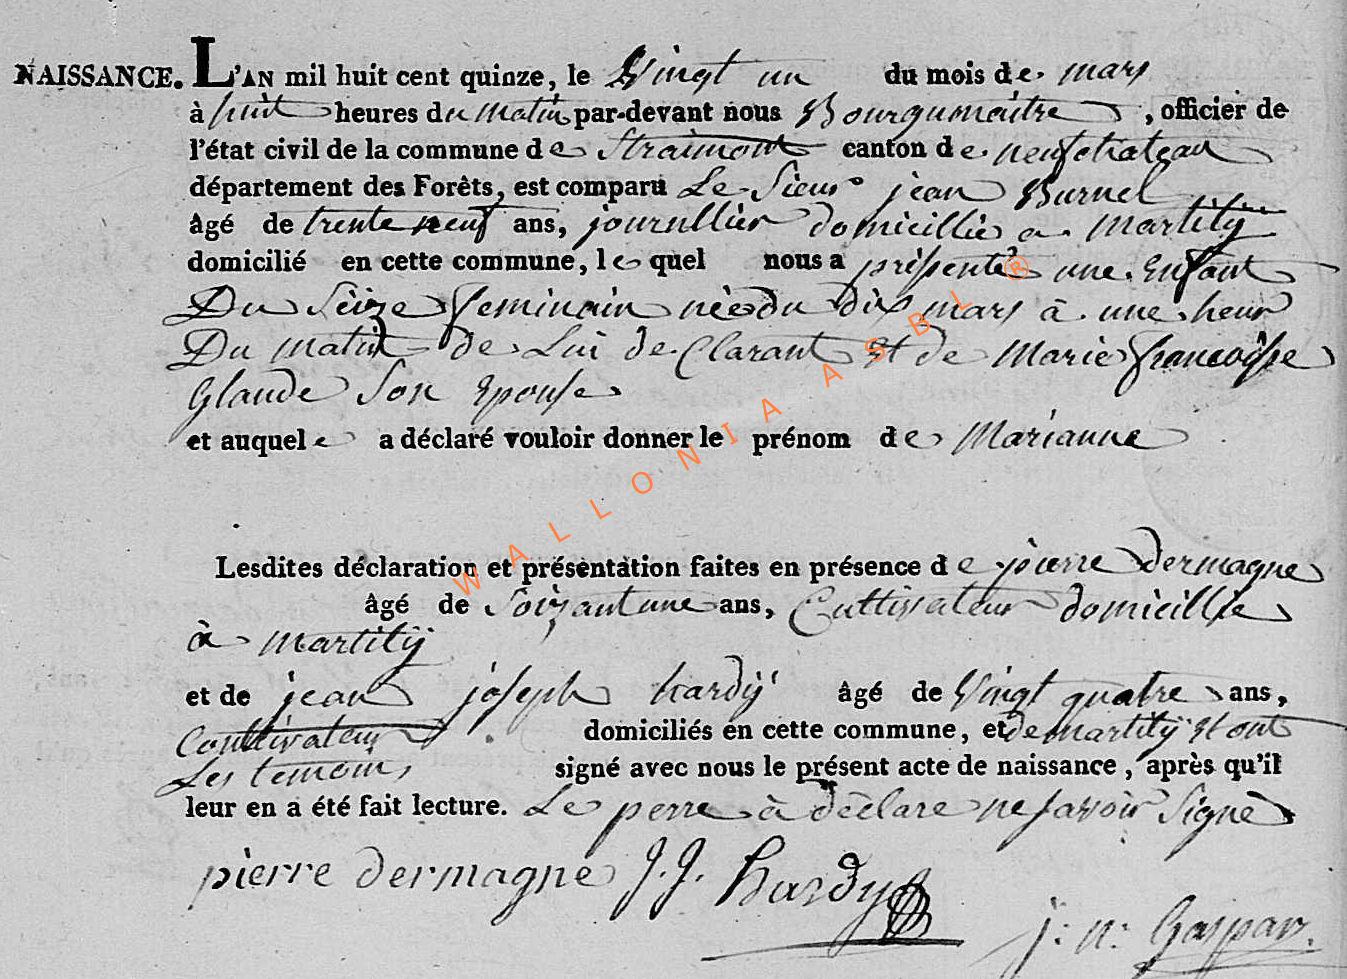 NAISSANCE. L'AN mil huit cent quinze, le Vingt un du mois de mars
à huit heures du matin par-devant nous Bourgumaitre, officier de
l'état civil de la commune de Straimont canton de neufchateau
département des Forêts, est comparu Le Sieur jean Burnel
âgé de trente neuf ans, journllier domicillié a Martilÿ
domicilié en cette commune, le quel nous a prèsenté une Enfant
Du Seize feminain née du dix mars à une heur
Du matin de Lui de Clarant Et de Marie francoisse
Glaude Son Epouse
et auquele a déclaré vouloir donner le prénom de Marianne
Lesdites déclaration et présentation faites en présence de pierre Dermagne
âgé de Soixantune ans, Cultivateur domicillié
à martilÿ
et de jean joseph hardÿ âgé de Vingt quatre ans,
Coultivateur domiciliés en cette commune, et de martilÿ Et ont
Les temoins signé avec nous le présent acte de naissance, après qu'il
leur en a été fait lecture. Le perre à dèclare ne savoir Signè
pierre dermagne J. J. hardy
j: n: Gaspar
WALLONIA ASBL ®